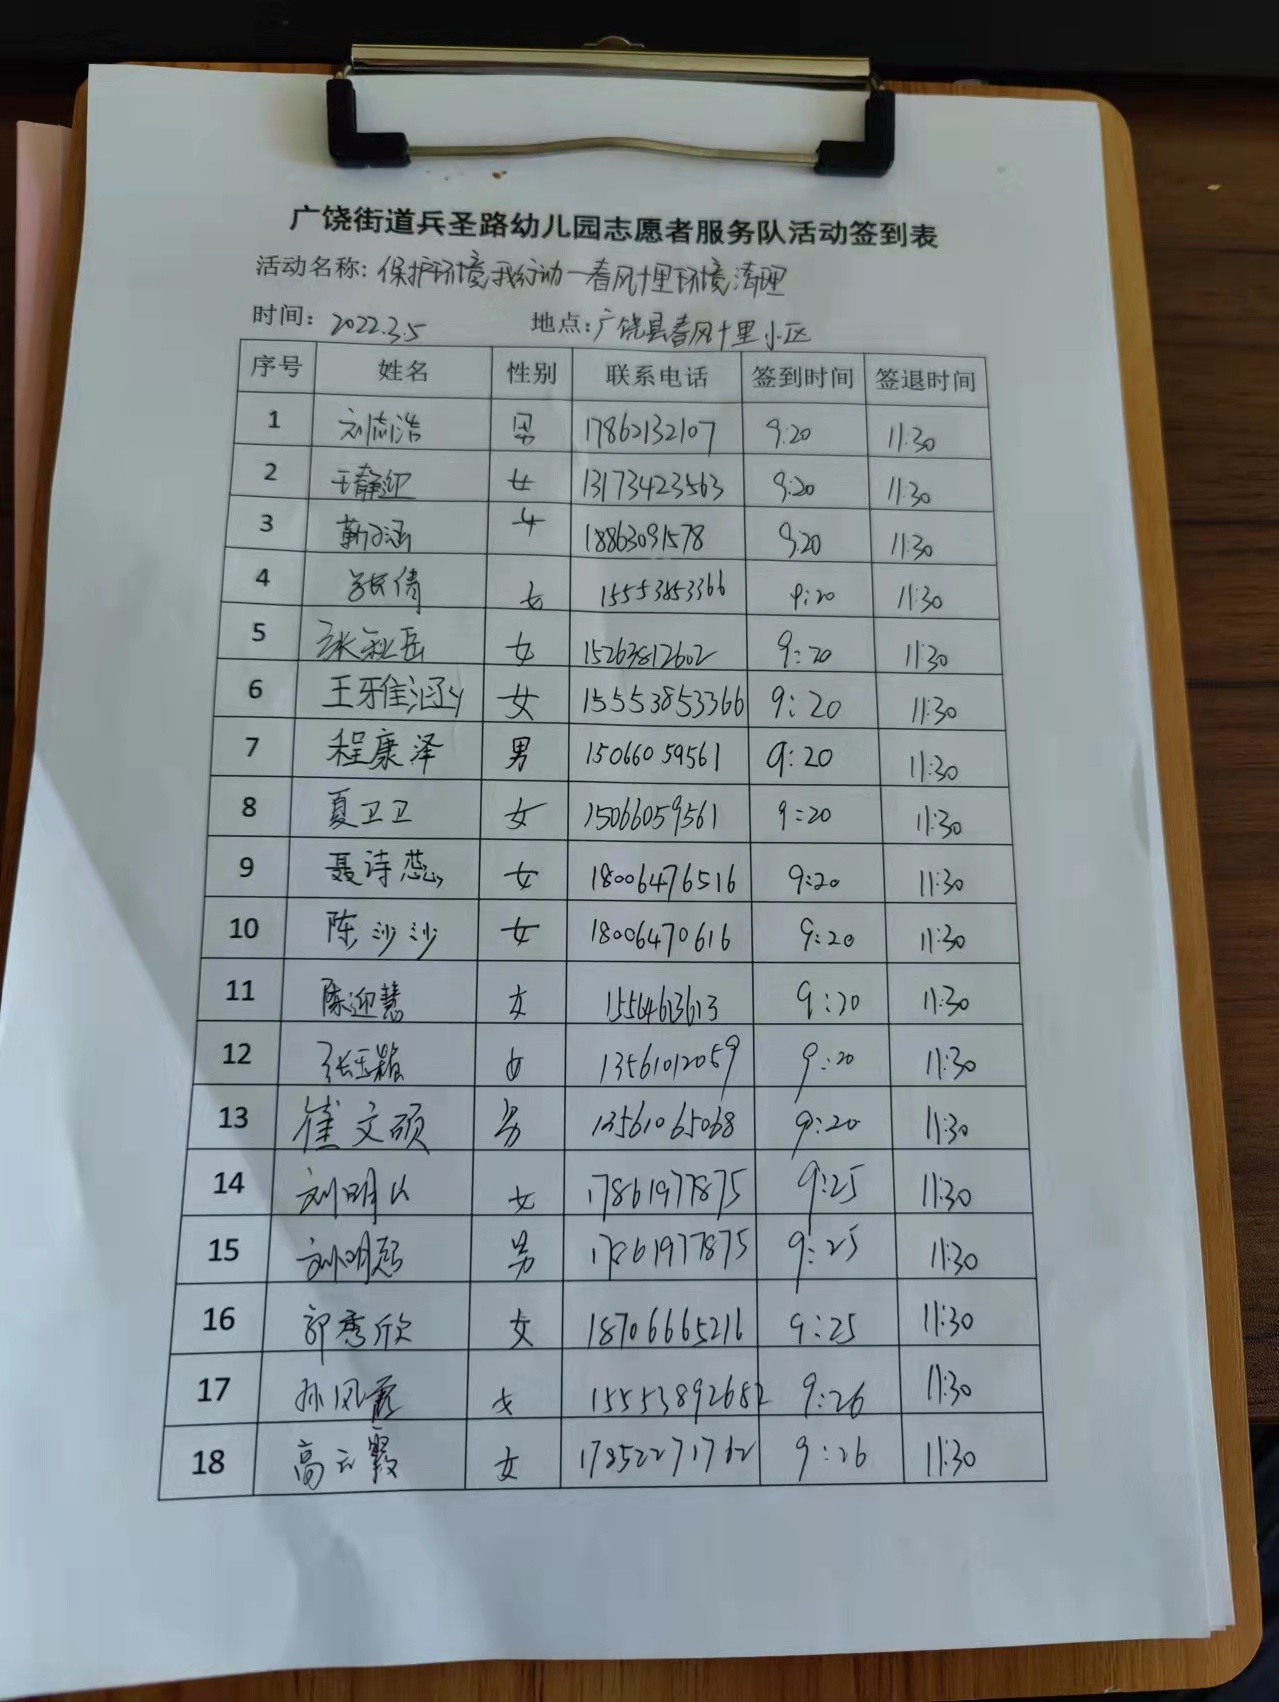 广饶街道兵圣路幼儿园志愿者服务队活动签到表
活动名称: 保护环境我行动—春风十里环境清理
时间: 2022.3.5 地点: 广饶县春风十里小区
序号 姓名 性别 联系电话 签到时间 签退时间
1 刘志浩 男 17862132107 9:20 11:30
2 王静迎 女 13173423563 9:20 11:30
3 靳子涵 女 18863091578 9:20 11:30
4 倩 女 15553853366 9:20 11:30
5 张 岳 女 15263812602 9:20 11:30
6 王雅涵 女 15553853366 9:20 11:30
7 程康泽 男 15066059561 9:20 11:30
8 夏卫卫 女 15066059561 9:20 11:30
9 聂诗蕊 女 18006476516 9:20 11:30
10 陈沙沙 女 18006470616 9:20 11:30
11 陈迎慧 女 9:20 11:30
12 张玉颖 女 13561012059 9:20 11:30
13 崔文硕 男 13561065068 9:20 11:30
14 刘明 女 17861977875 9:25 11:30
15 刘明 男 17861977875 9:25 11:30
16 郭秀欣 女 18706665216 9:25 11:30
17 孙凤霞 女 15553892682 9:26 11:30
18 高云霞 女 17852271762 9:26 11:30